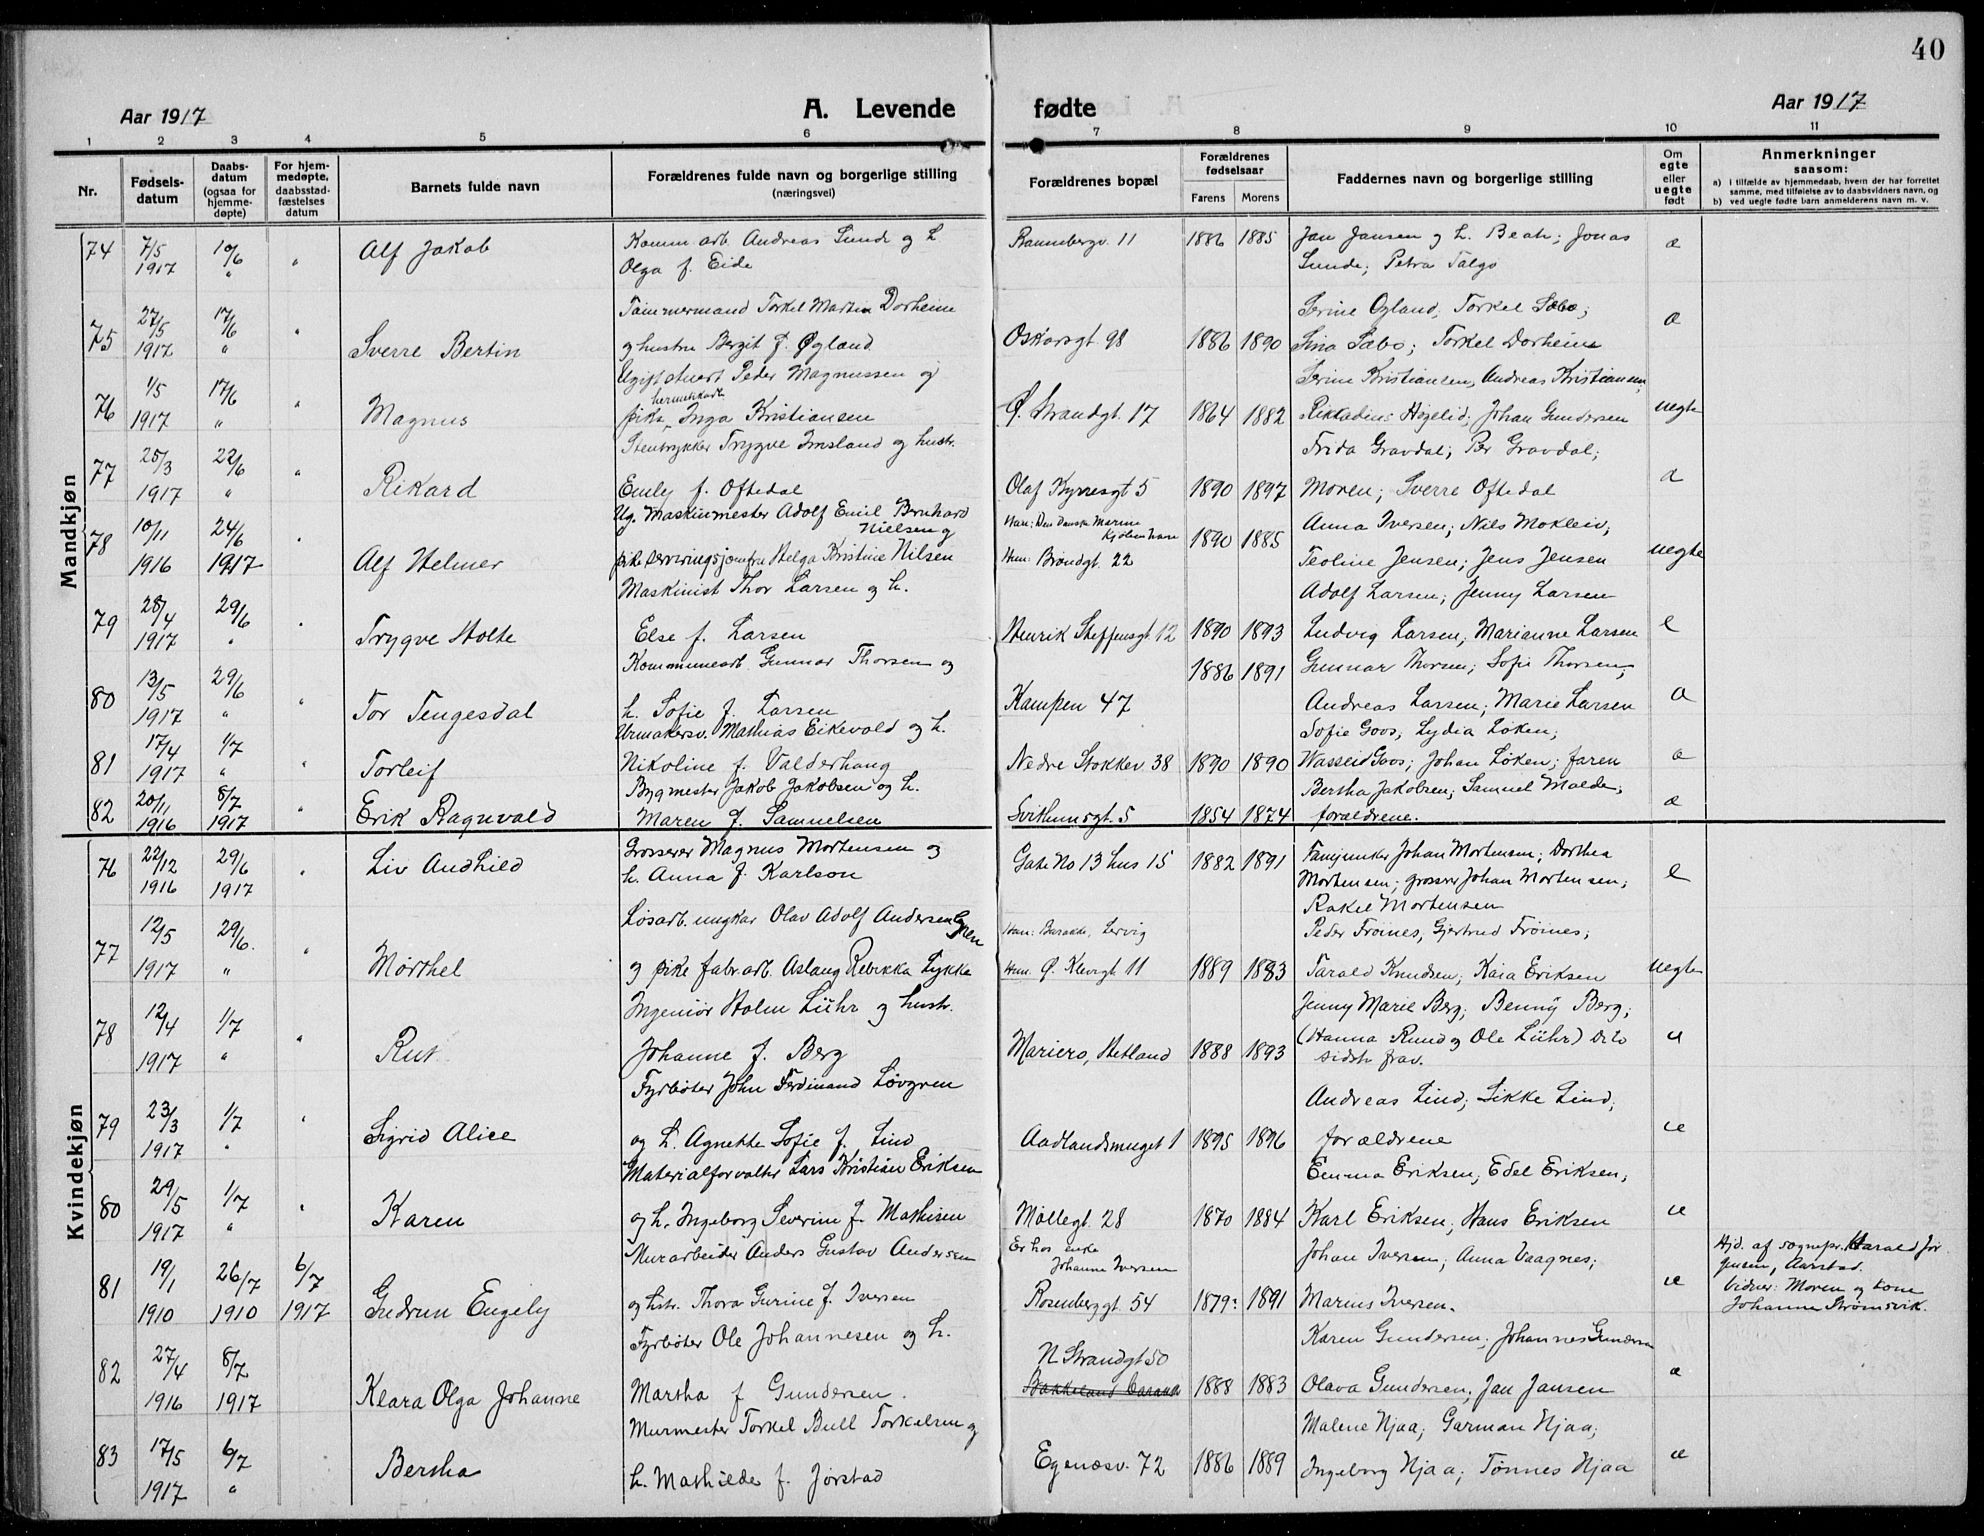 40
Aar 1917
A. Levende
fødte
Aar 1917
1 2 3 4 5 6 7 8 9 10 11
Nr.
Fødsels-
datum
Daabs-
datum
(ogsaa for
hjemme-
døpte)
For hjem-
medøpte,
daabsstad-
fæstelses
datum
Barnets fulde navn
Forældrenes fulde navn og borgerlige stilling
(næringsvei)
Forældrenes bopæl
Forældrenes
fødselsaar
Farens Morens
Faddernes navn og borgerlige stilling
Om
egte
eller
uegte
født
Anmerkninger
saasom:
a) i tilfælde av hjemmedaab, hvem der har forrettet
samme, med tilføielse av to daabsvidners navn, og
b) ved uegte fødte barn anmelderens navn m. v.
Mandkjøn
74 7/5 10/6 " Alf Jakob Komm arb. Andreas Sunde og h. Rannebergv. 11 1886 1885 Jan Jansen og h. Beate; Jonas æ
1917 " Olga f. Eide Sunde; Petra Talgø
75 27/5 17/6 " Tømmermand Torkel Martin Dorheim Serine Øgland; Torkel Sæbø; æ
1917 " Sverre Bertin og hustru Bergit f. Øgland Oskarsgt. 98 1886 1890 Sina Sæbø; Torkel Dorheim
76 1/5 17/6 " Ugift stuert Peder Magnussen og Serine Kristiansen, Andreas Kristiansen,
hermetikarb.
1917 " Magnus pike Inga Kristiansen Ø. Strandgt. 17 1864 1882 Høgelid; Johan Gundersen uegte
77 25/3 22/6 " Stentrykker Trygve Imsland og hustr. Frida Gravdal; Per Gravdal;
1917 " Rikard Emly f. Oftedal Olaf Kyrresgt 5 1890 1897 Moren; Sverre Oftedal æ
78 10/11 24/6 " Ug. Maskinmester Adolf Emil Bernhard Han: Den danske Marine Anna Iversen; Nils Mokleiv;
Nielsen og Kjøbenhavn 1890 1885
1916 1917 Alf Helmer pike serveringsjomfru Helga Kristine Nilsen Hun: Brøndgt. 22 Teoline Jensen; Jens Jensen uegte
79 28/4 29/6 " Maskinist Thor Larsen og h. Adolf Larsen; Jenny Larsen
1917 " Trygve Holte Else f. Larsen Henrik Steffensgt. 12 1890 1893 Ludvig Larsen; Marianne Larsen e
80 13/5 29/6 " Kommunearb. Gunnar Thorsen og 1886 1891 Gunnar Thorsen; Sofie Thorsen;
1917 " Tor Tengesdal h. Sofie f. Larsen Kampen 47 Andreas Larsen; Marie Larsen æ
81 17/4 1/7 " Urmakersv. Mathias Eikevold og h. Sofie Goos; Lydia Løken;
1917 " Torleif Nikoline f. Valderhaug Nedre Stokkev 38 1890 1890 Goos; Johan Løken; faren æ
82 20/11 8/7 " Bygmester Jakob Jakobsen og h. Bertha Jakobsen; Samuel Molde;
1916 1917 Erik Ragnvald Maren f. Samuelsen Svithunsgt. 5 1854 1874 forældrene. æ
Kvindekjøn
76 22/12 29/6 " Liv Andhild Grosserer Magnus Mortensen og Gate No 13 hus 15 1882 1891 Fanejunker Johan Mortensen; Dorthea
1916 1917 h. Anna f. Karlson Mortensen; grosserer Johan Mortensen; e
Rakel Mortensen
77 12/5 29/6. " Løsarb. ungkar Olav Adolf Andersen Han: Barakke, Lervig Peder Frøines, Gjertrud Frøines;
1917 " Mørthel og pike fabr.arb. Aslaug Rebekka Lykke Hun Ø. Klevgt 11 1889 1883 Tarald Knudsen; Kaia Eriksen uegte
78 12/4 1/7 " Ingeniør Holm Lühr og hustr. Jenny Marie Berg; Benny Berg;
1917 " Rut Johanne f. Berg Mariero, Hetland 1888 1893 (Hanna Rund og Ole Lühr) De to
sidste frav. æ
79 23/3 1/7 " Fyrbøter John Ferdinand Løvgren Andreas Lind; Likke Lind;
1917 " Sigrid Alice og h. Agnethe Sofie f. Lind Aadlandsmuget 1 1895 1896 forældrene æ
80 29/5 1/7 " Materialforvalter Lars Kristian Eriksen Emma Eriksen; Edel Eriksen;
1917 " Karen og h. Ingeborg Severine f. Mathisen Møllegt. 28 1870 1884 Karl Eriksen; Hans Eriksen æ
81 19/1 26/7 6/7 Murarbeider Anders Gustav Andersen Er hos enke Johan Iversen; Anna Vaagnes; Hjd. af sognepr. Harald Jør
Johanne Iversen gensen, Aarstad.
1910 1910 1917 Gudrun Engely og hstr. Thora Gurine f. Iversen Rosenberggt. 54 1879: 1891 Marius Iversen. æ Vidner: Moren og kone
Johanne Strømsvik.
82 27/4 8/7 Fyrbøter Ole Johannesen og h. N Strandgt 50 Karen Gundersen; Johannes Gundersen
1916 1917 Klara Olga Johanne Martha f Gundersen. 1888 1883 Olava Gundersen; Jan Jansen æ
83 17/5 6/7 Murmester Torkel Bull Torkelsen og Malene Njaa; Garman Njaa;
1917 " Bertha h. Mathilde f. Jørstad Egenæsv. 72 1886 1889 Ingeborg Njaa; Tønnes Njaa æ